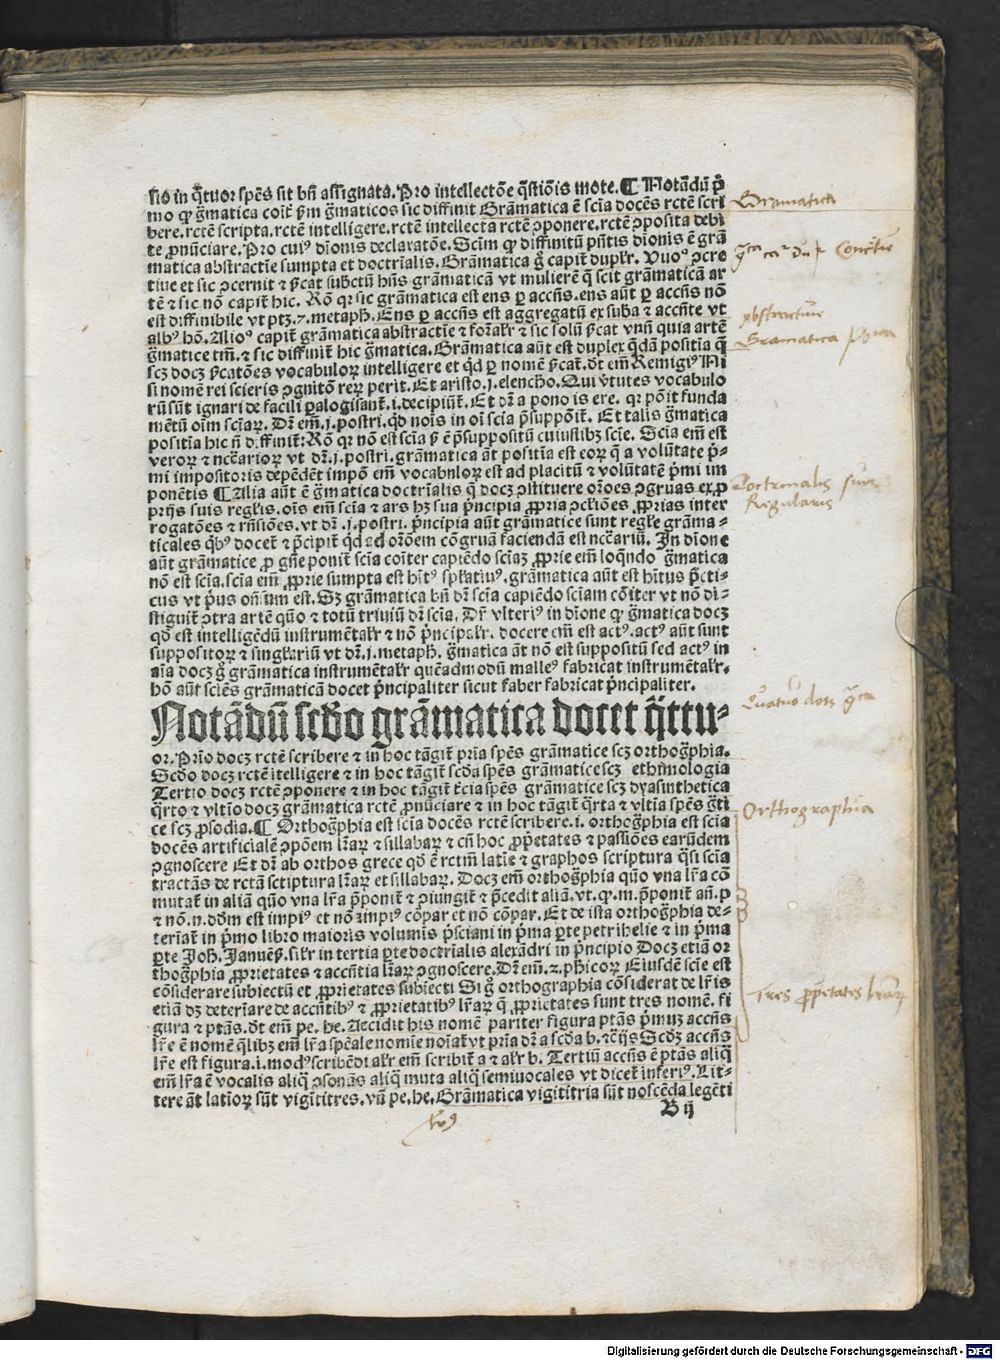 sio in q̄tuor spēs sit bn̄ assignata. Pro intellectōe q̄stiōis mote. ¶ Notādū p̄
mo qꝫ ḡmatica coit̄ ẜm ḡmaticos sic diffinit Grāmatica ē scīa docēs rctē scri
bere. rctē scripta. rctē intelligere. rctē intellecta rctē ꝯponere. rctē ꝯposita debi
te ꝓnūciare. Pro cuiꝰ diōnis declaratōe. Sciēm qꝫ diffinitū pn̄tis diōnis ē grā
matica abstractiē sumpta et doctrīalis. Grāmatica g̊ capit̄ duplr̄. Vnoꝰ ꝯcre
tiue et sic ꝯcernit ⁊ p̄cat subctū hn̄s grāmaticā vt mulierē q̄ scit grāmaticā ar
tē ⁊ sic nō capit̄ hic. Rō qꝛ sic grāmatica est ens ꝑ accn̄s. ens aūt ꝑ accn̄s nō
est diffinibile vt ptꝫ .7. metaph̄. Ens ꝑ accn̄s est aggregatū ex suba ⁊ accn̄te vt
albꝰ hō. Alioꝰ capit̄ grāmatica abstractiē ⁊ forālr̄ ⁊ sic solū p̄cat vnū quia artē
ḡmatice tm̄. ⁊ sic diffinit̄ hic ḡmatica. Grāmatica aūt est duplex q̄dā positīa q̄
scꝫ docꝫ p̄catōes vocabuloꝝ intelligere et qd̄ ꝑ nomē p̄cat̄. dt̄ em̄ Remigiꝰ Ni
si nomē rei scieris ꝯgnitō reꝝ perit. Et aristo. j. elencho. Qui v̄tutes vocabulo
rū sūt ignari de facili ꝑalogisant̄. i. decipiūt̄. Et dr̄ a pono is ere. qꝛ pōit funda
mētū oīm sciaꝝ. Dr̄ em̄ .j. postri. qd̄ nois in oī scīa p̄suppōit̄. Et talis ḡmatica
positīa hic n̄ diffinit̄: Rō qꝛ nō est scīa ẜ ē p̄suppositū cuiuslibꝫ scīe. Scia em̄ est
veroꝝ ⁊ ncc̄arioꝝ vt dr̄ .j. postri. grāmatica āt positīa est eoꝝ q̄ a volūtate p̄-
mi impositoris depēdēt impō em̄ vocabnloꝝ est ad placitū ⁊ volūtatē p̄mi im
ponētis ¶ Alia aūt ē ḡmatica doctrīalis q̄ docꝫ ꝯstituere orōes ꝯgruas ex ꝓ
prijs suis regl̄is. oīs em̄ scīa ⁊ ars hꝫ sua p̄ncipia ꝓpria ꝯcl̄iōes ꝓprias inter
rogatōes ⁊ rn̄siōes. vt dr̄ .j. postri. p̄ncipia aūt grāmatice sunt regl̄e grāma-
ticales qbꝰ docet̄ ⁊ p̄cipit̄ qd̄ ad orōem cōgruā faciendā est ncc̄ariū. In diōne
aūt grāmatice ꝓ gn̄e ponit̄ scīa coiter capiēdo sciaꝫ ꝓprie em̄ loqn̄do ḡmatica
nō est scīa. scīa em̄ ꝓprie sumpta est hītꝰ spl̄atiuꝰ. grāmatica aūt est hītus p̄cti-
cus vt p̄us on̄sum est. Sꝫ grāmatica bn̄ dr̄ scīa capiēdo sciam cōiter vt nō di-
stiguit̄ ꝯtra artē quō ⁊ totū triuiū dr̄ scīa. Dr̄ vlteriꝰ in diōne qꝫ ḡmatica docꝫ
qd̄ est intelligēdū instrumētalr̄ ⁊ nō p̄ncipalr̄. docere em̄ est actꝰ. actꝰ aūt sunt
suppositoꝝ ⁊ singl̄ariū vt dr̄ .j. metaph̄. ḡmatica āt nō est suppositū sed actꝰ in
aīa docꝫ g̊ grāmatica instrumētalr̄ quēadmodū malleꝰ fabricat instrumētalr̄.
hō aūt sciēs grāmaticā docet p̄ncipaliter sicut faber fabricat p̄ncipaliter.
Notādū scd̄o grāmatica docet q̄ttu-
or. Prīo docꝫ rctē scribere ⁊ in hoc tāgit̄ pria spēs grāmatice scꝫ orthog̊phia.
Scd̄o docꝫ rctē ītelligere ⁊ in hoc tāgit̄ scd̄a spēs grāmatice scꝫ ethimologia
Tertio docꝫ rctē ꝯponere ⁊ in hoc tāgit̄ t̄cia spēs grāmatice scꝫ dyasinthetica
q̄rto ⁊ vltīo docꝫ grāmatica rctē ꝓnūciare ⁊ in hoc tāgit̄ q̄rta ⁊ vltīa spēs ḡti
ce scꝫ ꝓsodia. ¶ Orthog̊phia est scīa docēs rctē scribere. i. orthog̊phia est scīa
docēs artificialē ꝯpōem lr̄aꝝ ⁊ sillabaꝝ ⁊ cū hoc ꝓp̄etates ⁊ passiōes earūdem
ꝯgnoscere Et dr̄ ab orthos grece qd̄ ē rctm̄ latīe ⁊ graphos scriptura q̄si scīa
tractās de rctā sctiptura lr̄aꝝ et sillabaꝝ. Docꝫ em̄ orthog̊phia quō vna lr̄a cō
mutat̄ in aliā quō vna lr̄a p̄ponit̄ ⁊ ꝯiungit̄ ⁊ p̄cedit aliā. vt. q. m. p̄ponit̄ an̄. p
⁊ nō. n. dōm est impiꝰ et nō inpiꝰ cōpar et nō cōpar. Et de ista orthog̊phia de-
terīat̄ in p̄mo libro maioris volumīs p̄sciani in p̄ma ꝑte petrihelie ⁊ in p̄ma
ꝑte Joh̄. Januēs̄. silr̄ in tertia ꝑte doctrīalis alexādri in p̄ncipio Docꝫ etiā or
thog̊phia ꝓprietates ⁊ accn̄tia lr̄aꝝ ꝯgnoscere. Dr̄ em̄ .2. ph̄icoꝝ Eiusdē scīe est
cōsiderare subiectū et ꝓprietates subiecti Si g̊ orthographia cōsiderat de lr̄is
etiā dꝫ deterīare de accn̄tibꝰ ⁊ ꝓprietatibꝰ lr̄aꝝ q̄ ꝓprietates sunt tres nomē. fi
gura ⁊ ptās. dt̄ em̄ pe. he. Accidit his nomē pariter figura ptās p̄muꝫ accn̄s
lr̄e ē nomē q̄libꝫ em̄ lr̄a spēale nomīe noīat̄ vt prīa dr̄ a scd̄a b. ⁊c̄ijs Scd̄ꝫ accn̄s
lr̄e est figura. i. modꝰ scribēdi alr̄ em̄ scribit̄ a ⁊ alr̄ b. Tertiū accn̄s ē ptās aliq̄
em̄ lr̄a ē vocalis aliq̄ ꝯsonās aliq̄ muta aliq̄ semiuocales vt dicet̄ inferiꝰ. Lit-
tere āt latioꝝ sūt vigītitres. vn̄ pe. he. Grāmatica vigititria sūt noscēda legēti
B ij
Gramatica
abstractiue
Gramatica
Doctrinalis siue
Regularis
Quatuor docꝫ gr̄ca
Orthographia
Tres ꝓp̄etates lr̄arꝝ